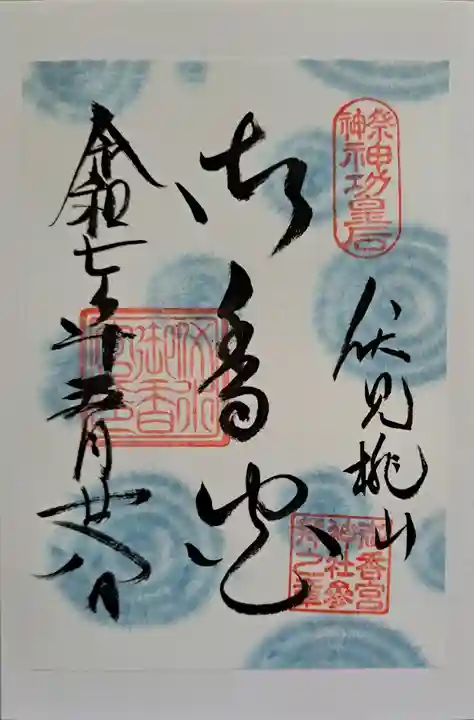 祭神
神功皇后
伏見桃山
御香宮神社参拝之章
御香宮
伏水御香宮印
令和七年五月廿八日